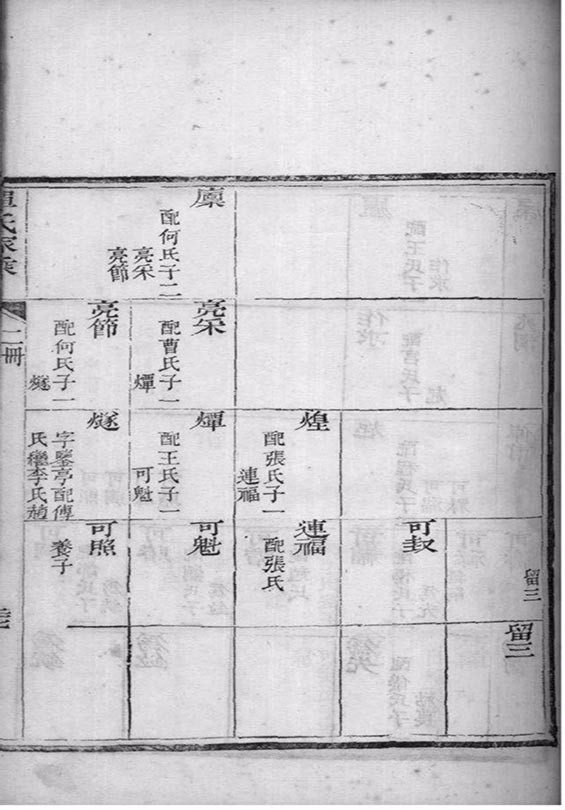 廩
配何氏子二
亮采
亮節
亮采
配曹氏子一
燀
亮節
配何氏子一
燧
煌
配張氏子一
連福
燀
配王氏子一
可魁
燧
字鑒亭配傅
氏繼李氏趙
留三
可叔
連福
配張氏
可魁
可照
養子
留三
氏家乘
二冊